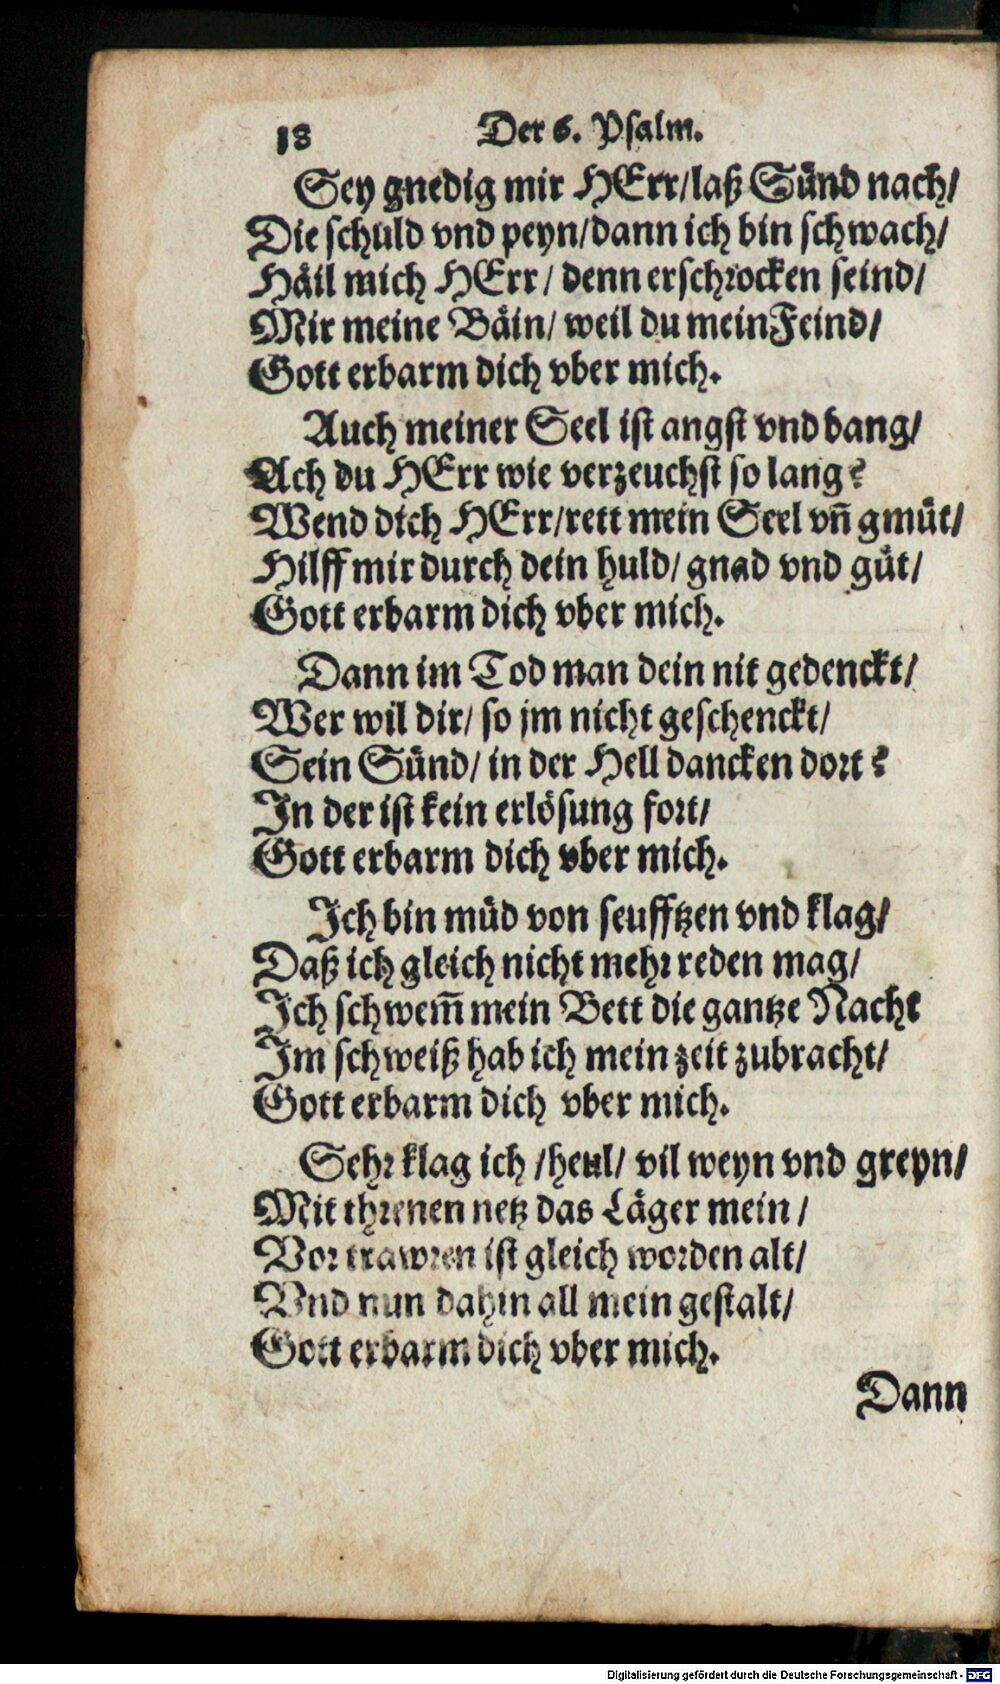 18 Der 6. Psalm.
Sey gnedig mir HErr/laß Sünd nach/
Die schuld vnd peyn/dann ich bin schwach/
Häil mich HErr/ denn erschrocken seind/
Mir meine Bäin/ weil du mein Feind/
Gott erbarm dich vber mich.
Auch meiner Seel ist angst vnd bang/
Ach du HErr wie verzeuchst so lang?
Wend dich HErr/rett mein Seel vñ gmüt/
Hilff mir durch dein huld/ gnad vnd güt/
Gott erbarm dich vber mich.
Dann im Tod man dein nit gedenckt/
Wer wil dir/ so jm nicht geschenckt/
Sein Sünd/ in der Hell dancken dort?
In der ist kein erlösung fort/
Gott erbarm dich vber mich.
Ich bin müd von seufftzen vnd klag/
Daß ich gleich nicht mehr reden mag/
Ich schwem̃ mein Bett die gantze Nacht
Im schweiß hab ich mein zeit zubracht/
Gott erbarm dich vber mich.
Sehr klag ich /heul/ vil weyn vnd greyn/
Mit threnen netz das Läger mein /
Vor trawren ist gleich worden alt/
Vnd nun dahin all mein gestalt/
Gott erbarm dich vber mich.
Dann
Digitalisierung gefördert durch die Deutsche Forschungsgemeinschaft - DFG